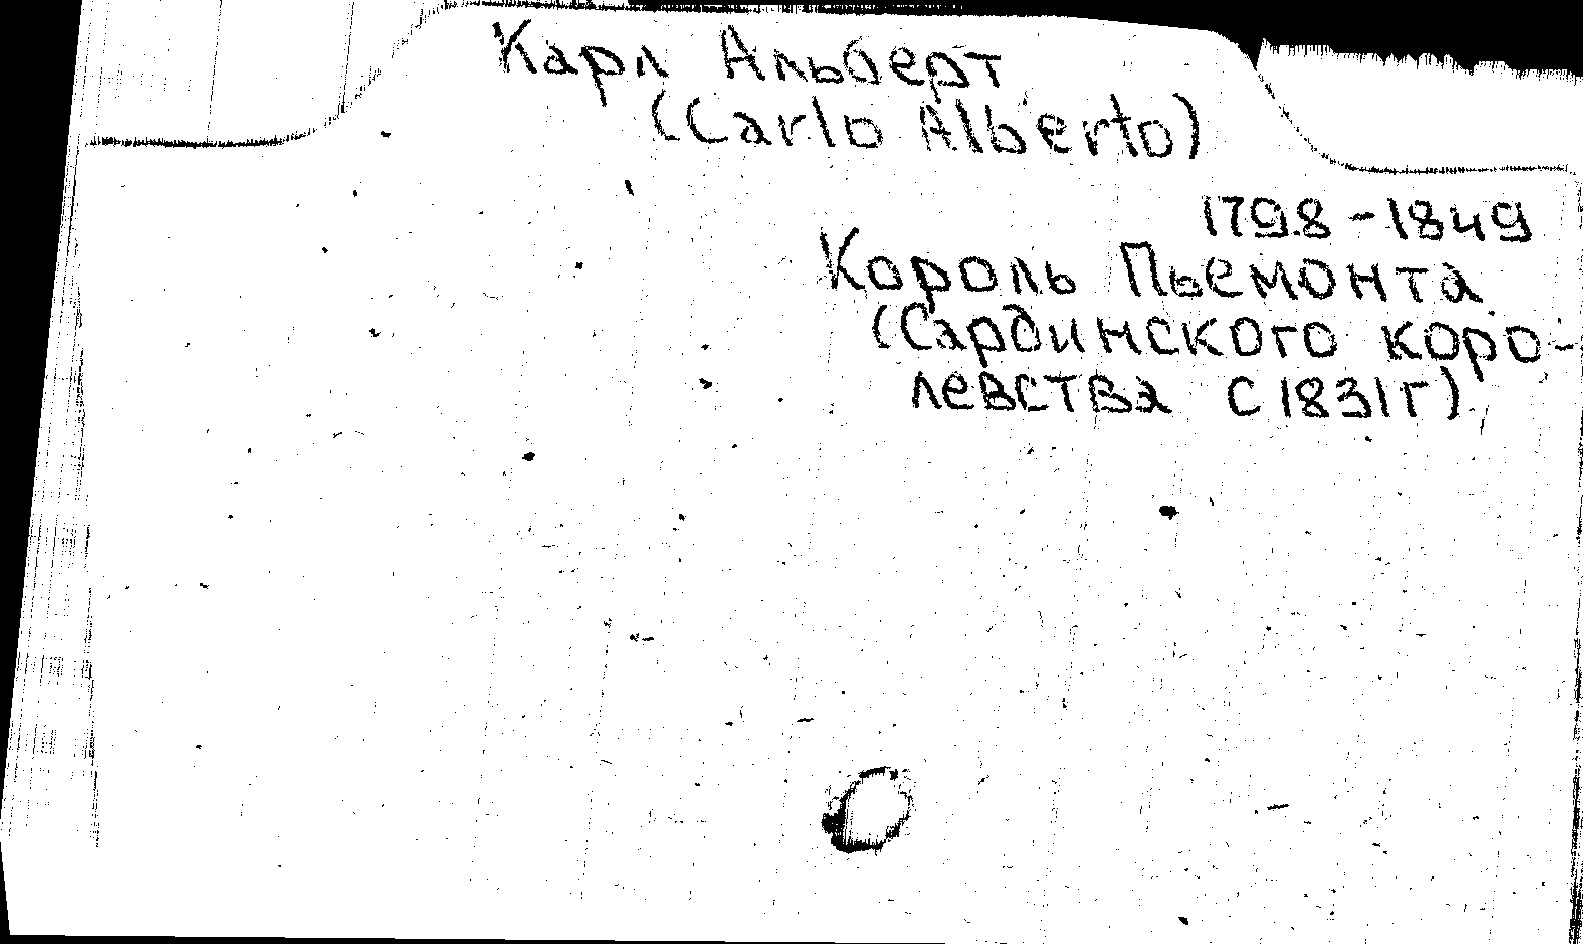 Карл Альберт
(Carlo Alberto)
1798-1849
Король Пьемонта
(Сардинского коро-
левства с 1831г)